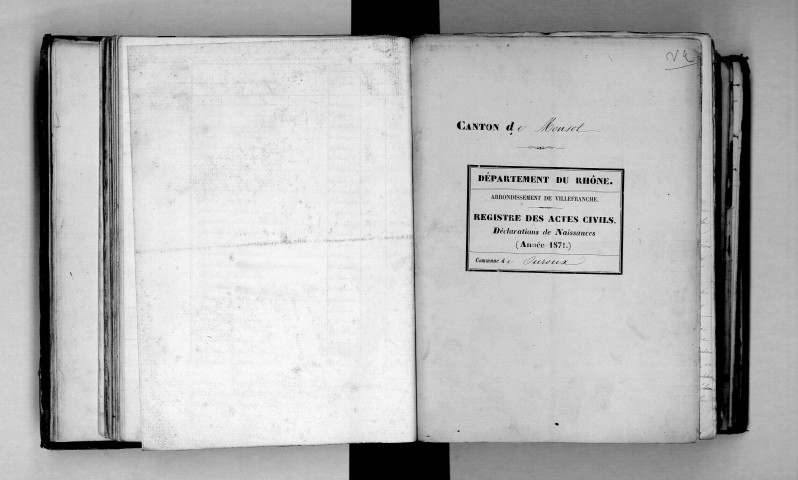 CANTON de Monsol
DÉPARTEMENT DU RHÔNE.
ARRONDISSEMENT DE VILLEFRANCHE.
REGISTRE DES ACTES CIVILS.
Déclarations de Naissances
(Année 1871.)
Commune de Ouroux